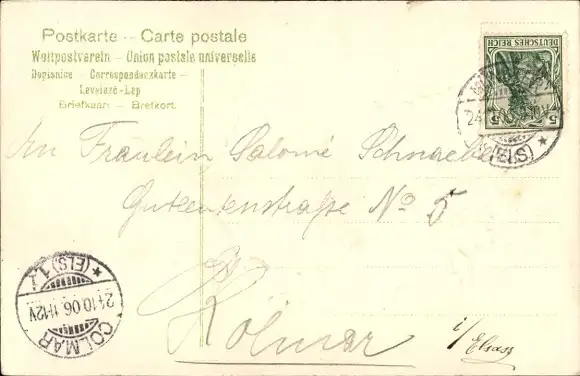 Postkarte -- Carte postale
Weltpostverein - Union postale universelle
Dopisnice - Correspondenzkarte -
Levelező-Lap
Briefkaart - Brefkort.
DEUTSCHES REICH
5 5
(ELS)
An Fräulein Salomé Schnaebel
Gutleutenstraße No 5
Kolmar
i/ Elsass
COLMAR
24.10.06.11-12V
* (ELS.) 1